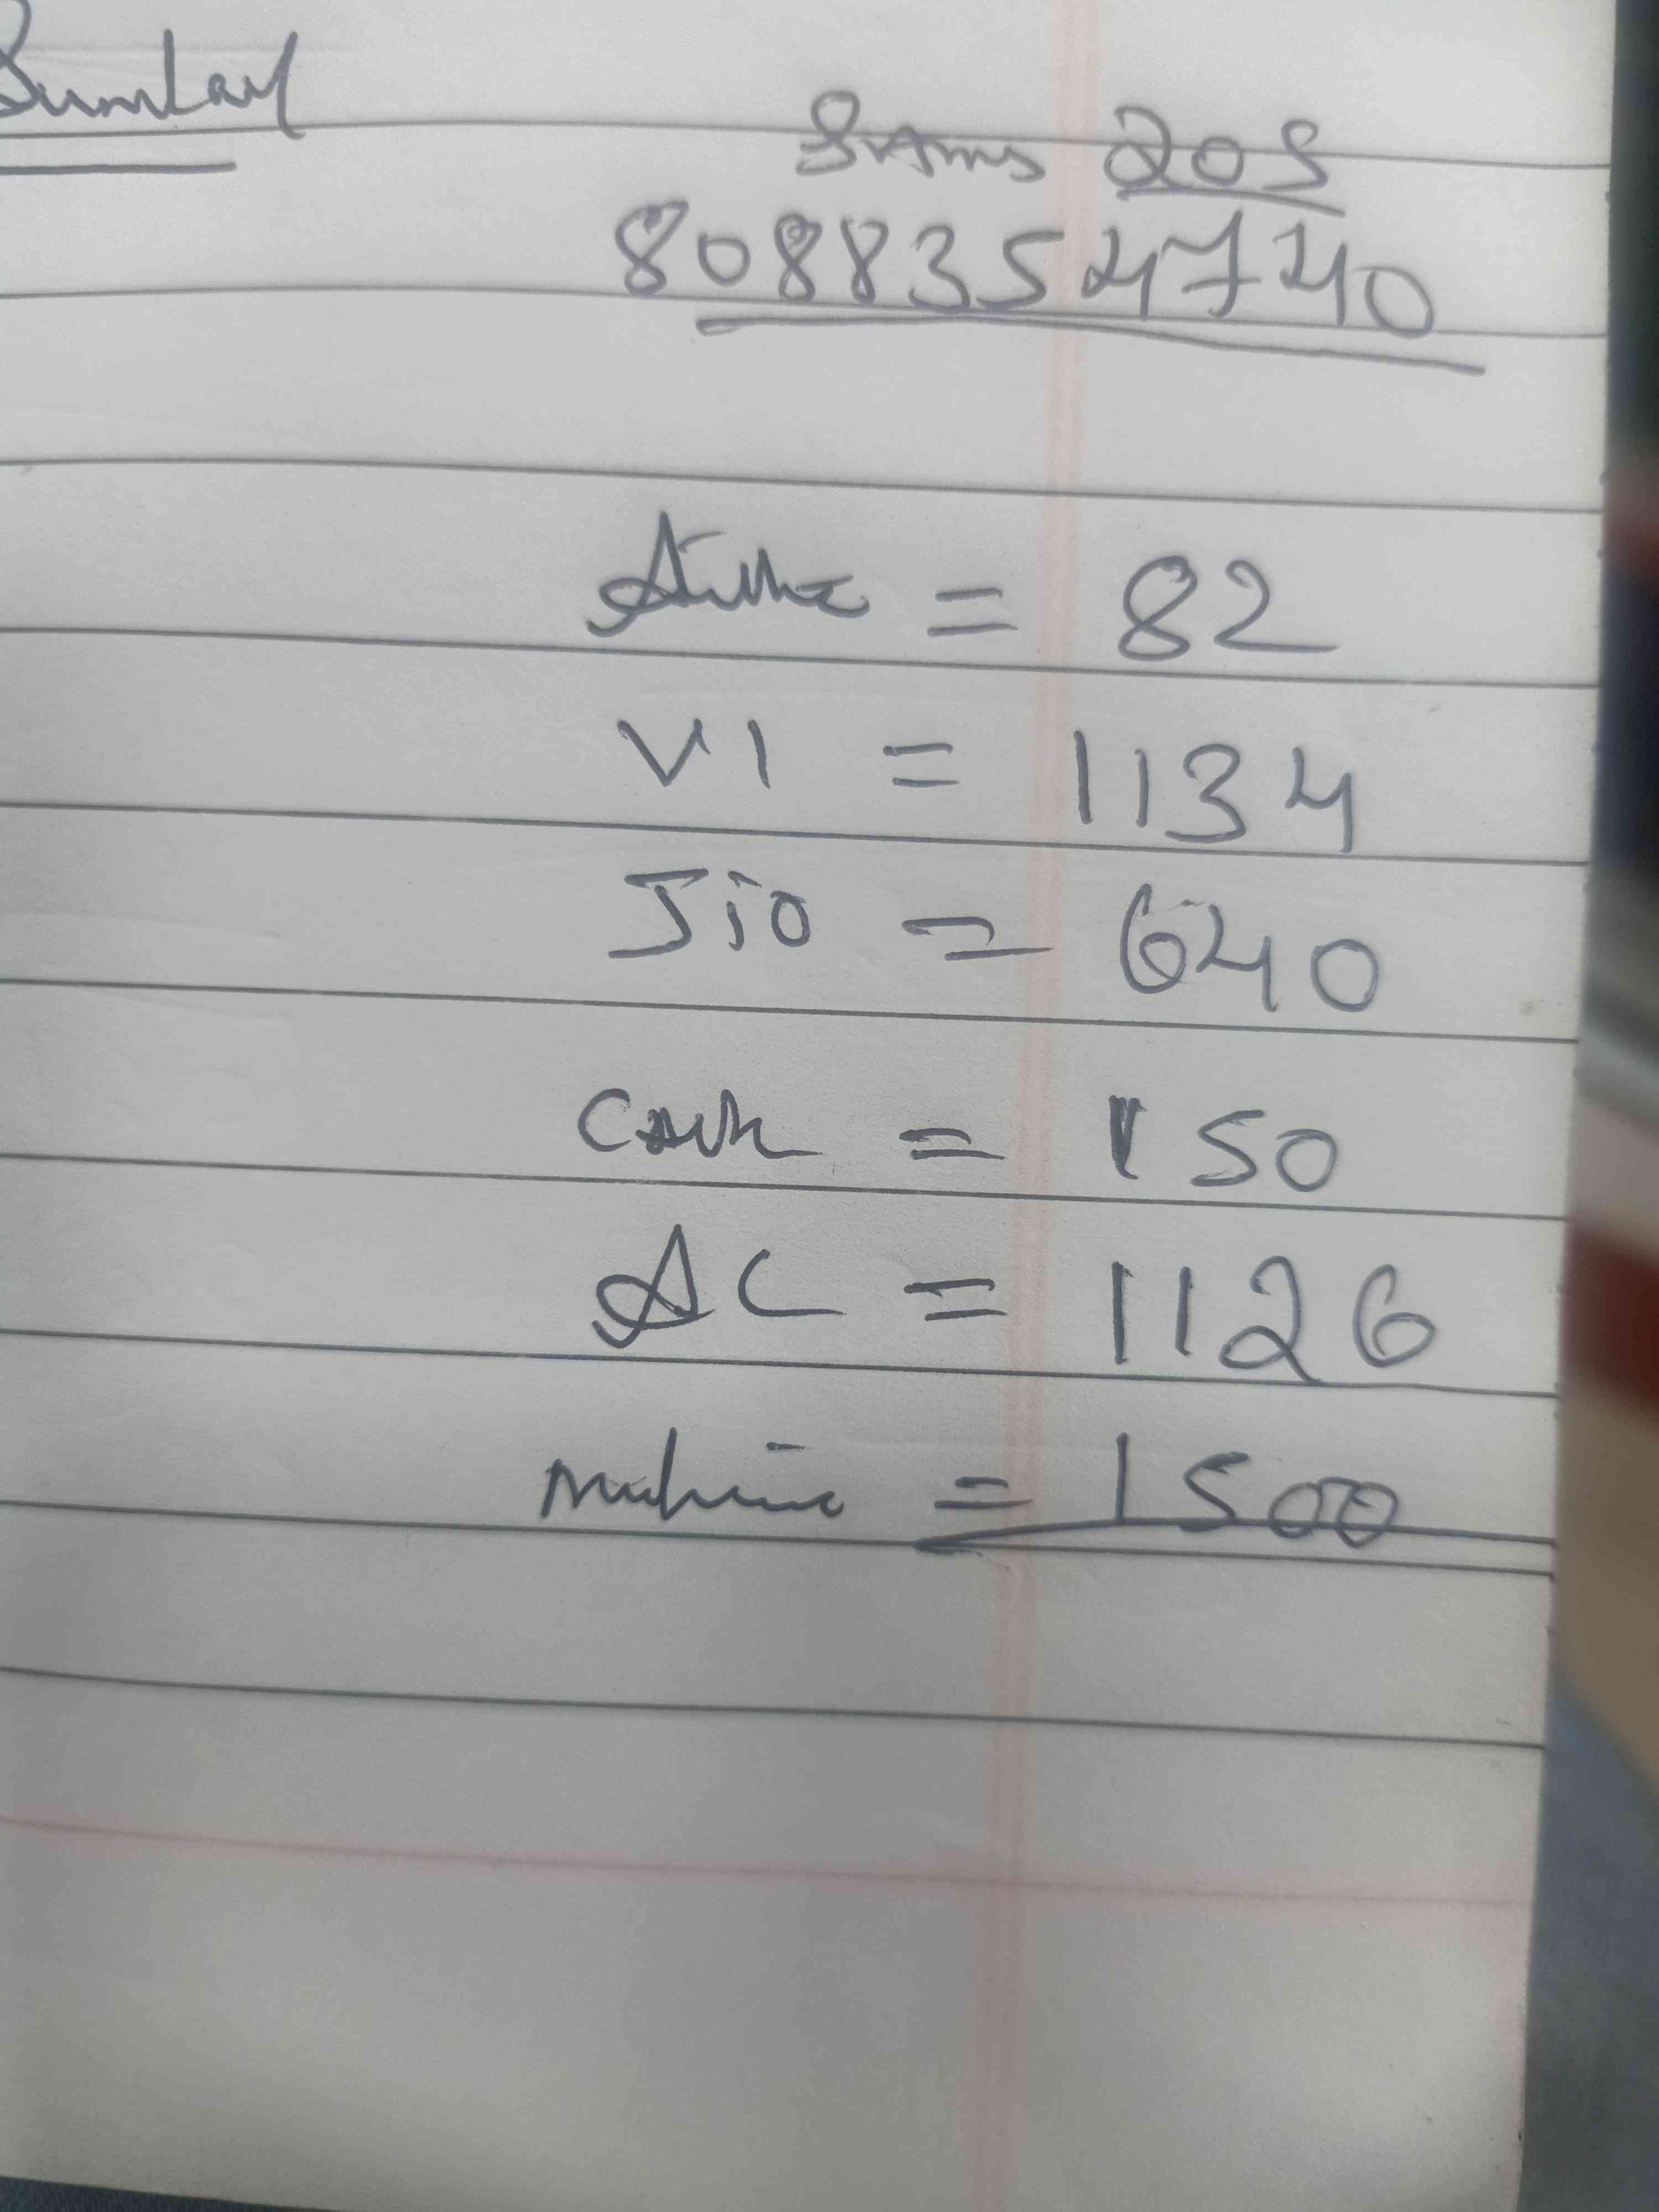 Sunday
Sams 20S
8088354740
Airtel = 82
VI = 1134
Jio = 640
Cash = 150
AC = 1126
Machine = 1500